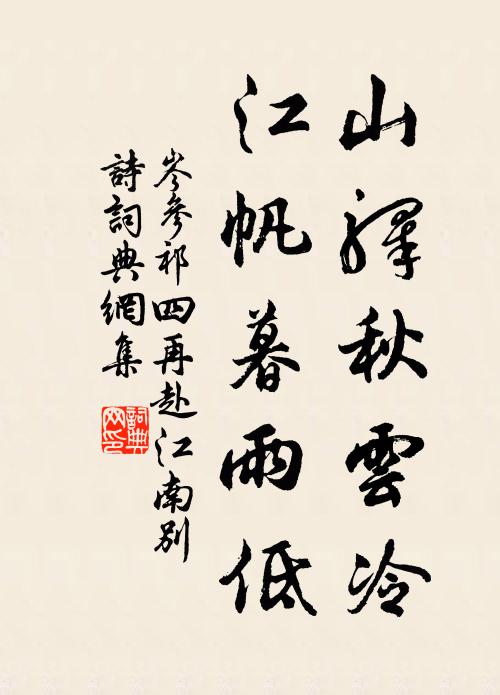 山驛秋雲冷
江帆暮雨低
岑參祁四再赴江南別
詩詞典網集
詞典網印